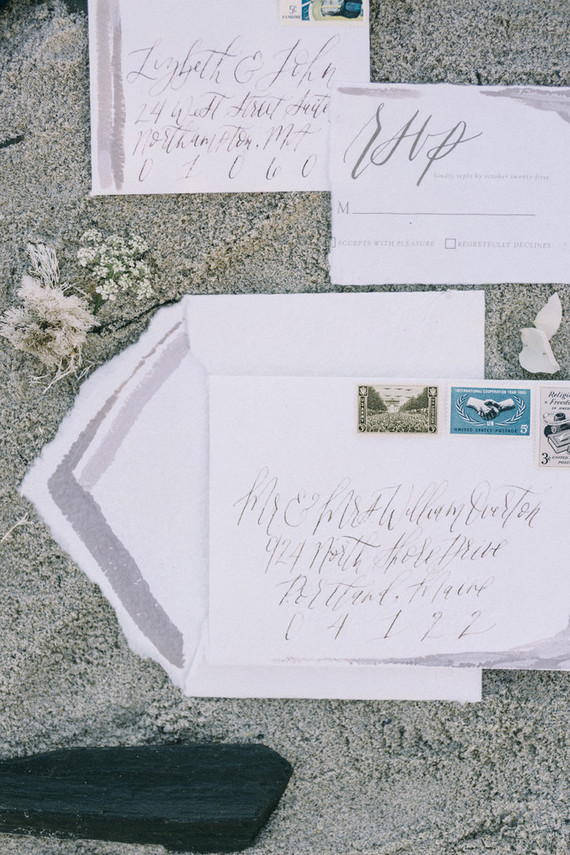 5¢
Lizbeth & John
24 West Street Suite
Northampton, MA
0 1 0 6 0
RSVP
kindly reply by october twenty first
M
ACCEPTS WITH PLEASURE REGRETFULLY DECLINES
INTERNATIONAL COOPERATION YEAR 1965
UNITED STATES POSTAGE 5¢
Religious
Freedom
3¢
Mr & Mrs William Overton
924 North Shore Drive
Portland, Maine
0 4 1 2 2